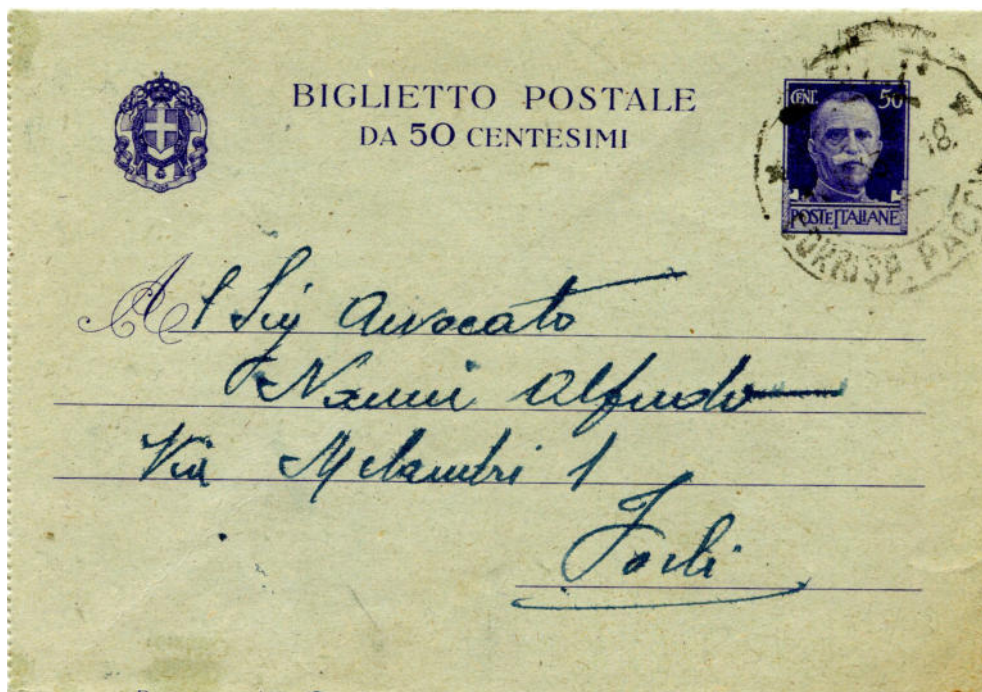 BIGLIETTO POSTALE
DA 50 CENTESIMI
CENT. 50
POSTE ITALIANE
18
CORRISP. PACCHI
Al Sig Avvocato
Nanni Alfredo
Via Melandri 1
Forli